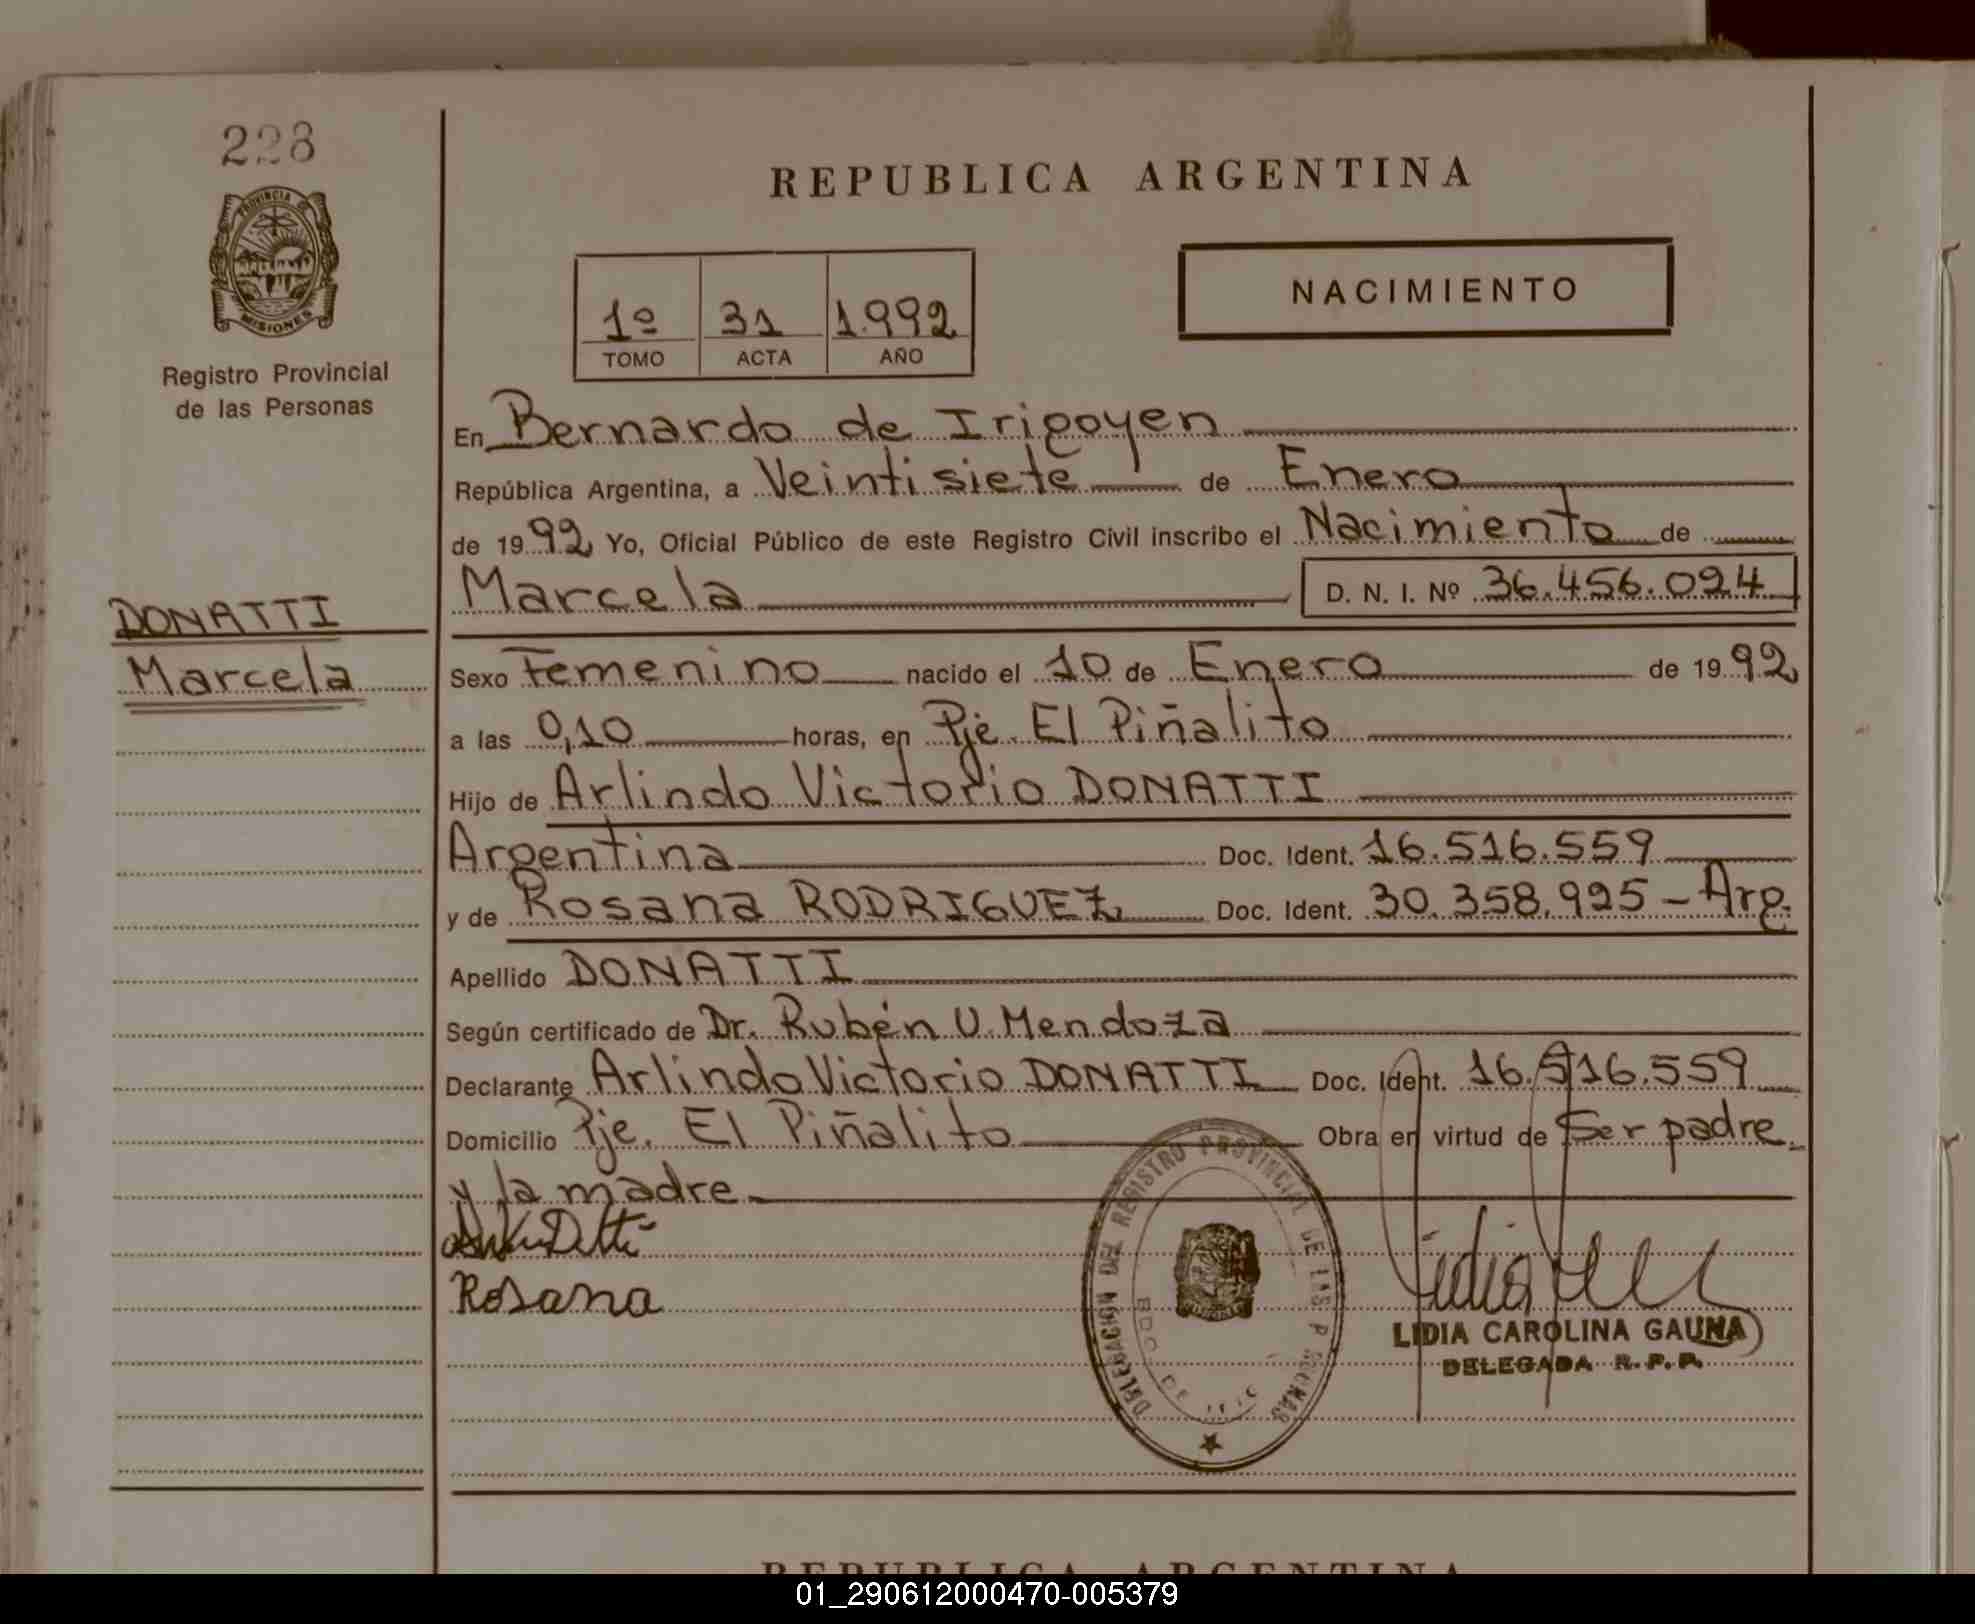 228
PROVINCIA DE
MISIONES
Registro Provincial
de las Personas
DONATTI
Marcela
REPUBLICA ARGENTINA
1º 31 1.992
TOMO ACTA AÑO
NACIMIENTO
En Bernardo de Irigoyen
República Argentina, a Veintisiete de Enero
de 1992 Yo, Oficial Público de este Registro Civil inscribo el Nacimiento de
Marcela D. N. I. Nº 36.456.024
Sexo Femenino nacido el 10 de Enero de 1992
a las 0,10 horas, en Pje. El Piñalito
Hijo de Arlindo Victorio DONATTI
Argentina Doc. Ident. 16.516.559
y de Rosana RODRIGUEZ Doc. Ident. 30.358.925 - Arg.
Apellido DONATTI
Según certificado de Dr. Rubén U. Mendoza
Declarante Arlindo Victorio DONATTI Doc. Ident. 16.516.559
Domicilio Pje. El Piñalito Obra en virtud de Ser padre
y la madre
Rosana
DELEGACION DEL REGISTRO PROVINCIAL DE LAS
BDO DE
LIDIA CAROLINA GAUNA
DELEGADA R. P. P.
REPUBLICA ARGENTINA
01_290612000470-005379